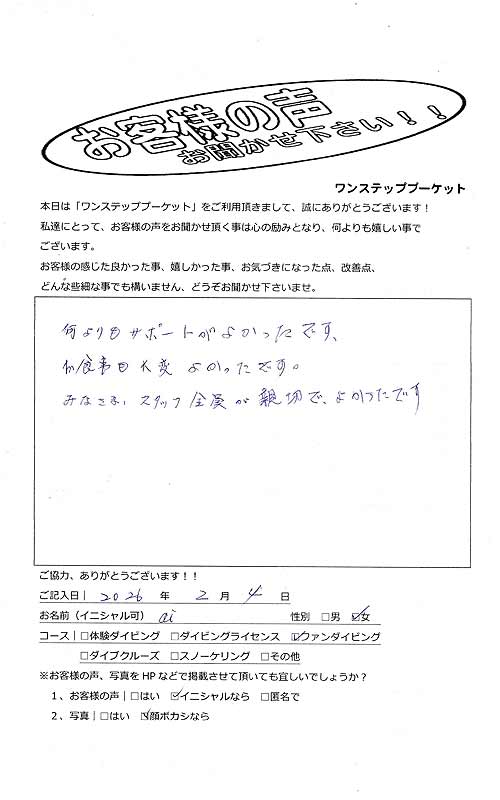 お客様の声
お聞かせ下さい！！
ワンステッププーケット
本日は「ワンステッププーケット」をご利用頂きまして、誠にありがとうございます！
私達にとって、お客様の声をお聞かせ頂く事は心の励みとなり、何よりも嬉しい事で
ございます。
お客様の感じた良かった事、嬉しかった事、お気づきになった点、改善点、
どんな些細な事でも構いません、どうぞお聞かせ下さいませ。
何よりもサポートがよかったです、
お食事も大変よかったです。
みなさま、スタッフ全員が親切で、よかったです
ご協力、ありがとうございます！！
ご記入日｜2026年2月4日
お名前（イニシャル可）ai 性別 □男 ☑女
コース｜□体験ダイビング □ダイビングライセンス ☑ファンダイビング
□ダイブクルーズ □スノーケリング □その他
※お客様の声、写真をHPなどで掲載させて頂いても宜しいでしょうか？
1、お客様の声｜□はい ☑イニシャルなら □匿名で
2、写真｜□はい ☑顔ボカシなら